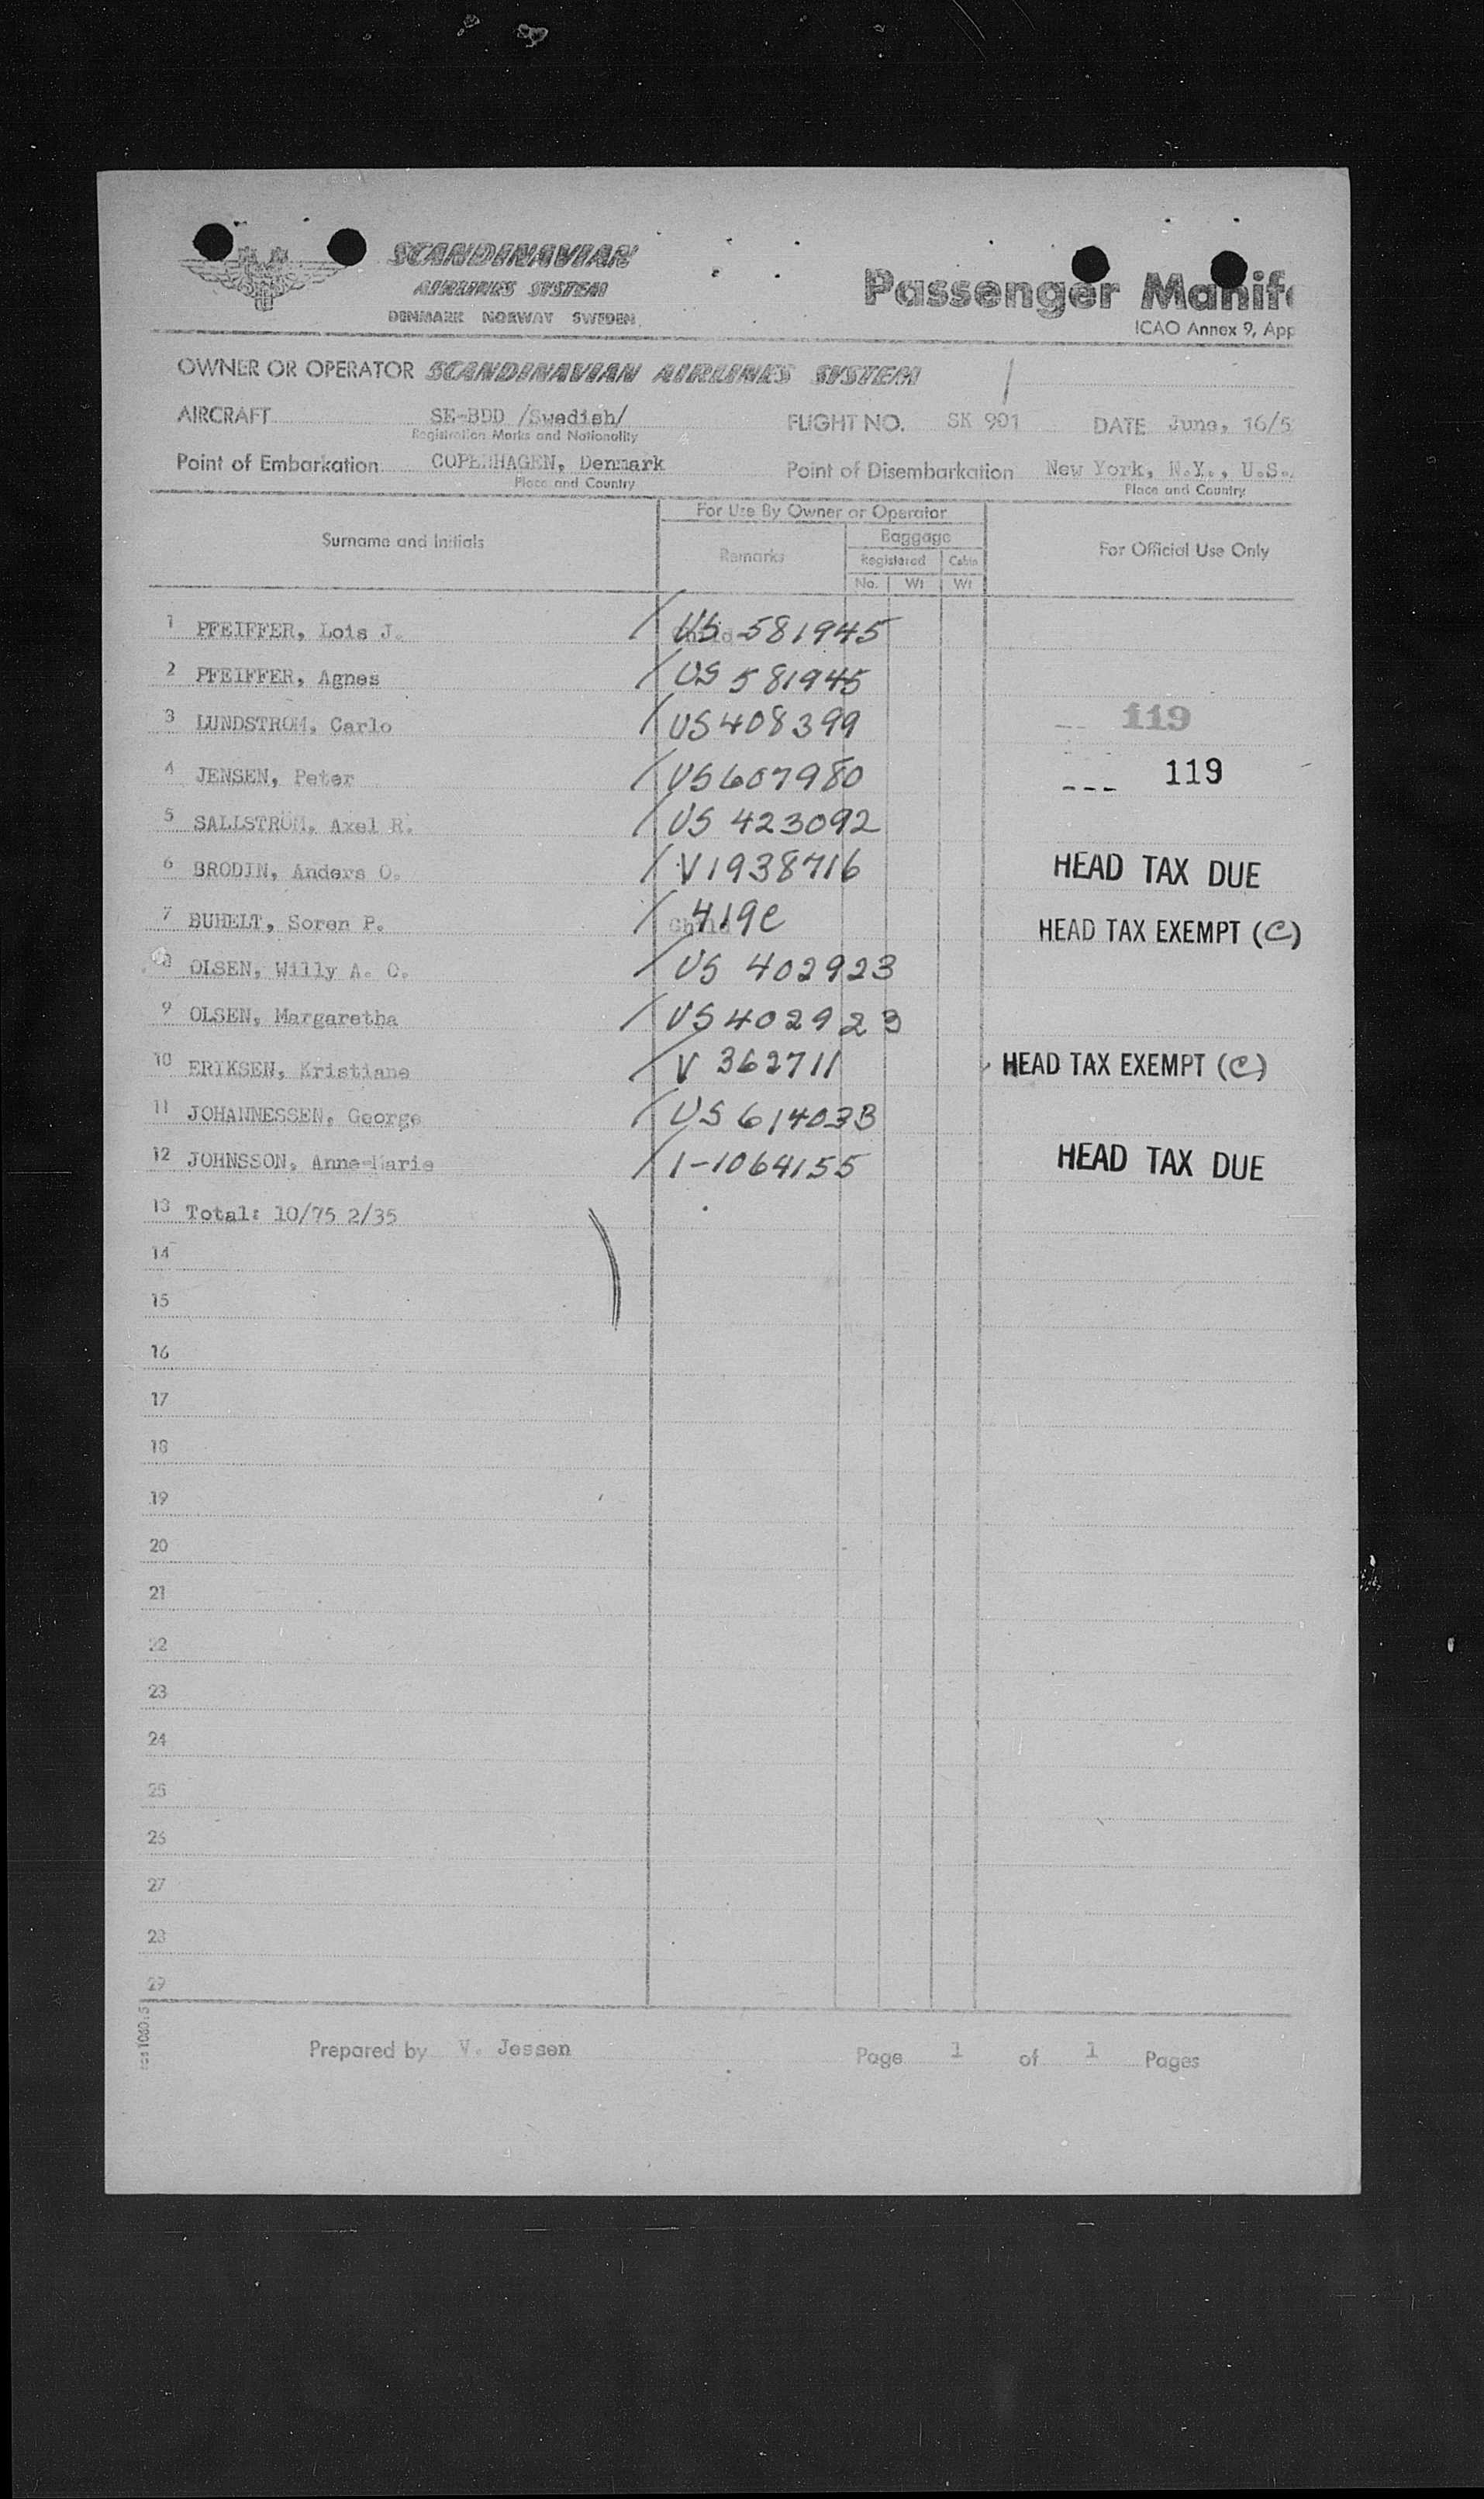 SCANDINAVIAN
AIRLINES SYSTEM
DENMARK NORWAY SWEDEN
Passenger Manif
ICAO Annex 9, App
OWNER OR OPERATOR SCANDINAVIAN AIRLINES SYSTEM
AIRCRAFT SE-BDD /Swedish/ FLIGHT NO. SK 901 DATE June, 16/5
Registration Marks and Nationality
Point of Embarkation COPENHAGEN, Denmark Point of Disembarkation New York, N.Y., U.S.
Place and Country Place and Country
Surname and Initials For Use By Owner or Operator For Official Use Only
Remarks Baggage
Registered Cabin
No. Wt Wt
1 PFEIFFER, Lois J. / Child US 581945
2 PFEIFFER, Agnes / US 581945
3 LUNDSTROM, Carlo / US 408399 119
4 JENSEN, Peter / US 607980 --- 119
5 SALLSTRÖM, Axel R. / US 423092
6 BRODIN, Anders O. / V1938716 HEAD TAX DUE
7 BUHELT, Soren P. / Child 419e HEAD TAX EXEMPT (C)
8 OLSEN, Willy A. O. / US 402923
9 OLSEN, Margaretha / US 402923
10 ERIKSEN, Kristiane / V 362711 HEAD TAX EXEMPT (C)
11 JOHANNESSEN, George / US 614033
12 JOHNSSON, Anne-Marie / 1-1064155 HEAD TAX DUE
13 Total: 10/75 2/35
14
15
16
17
18
19
20
21
22
23
24
25
26
27
28
29
Prepared by V. Jessen Page 1 of 1 Pages